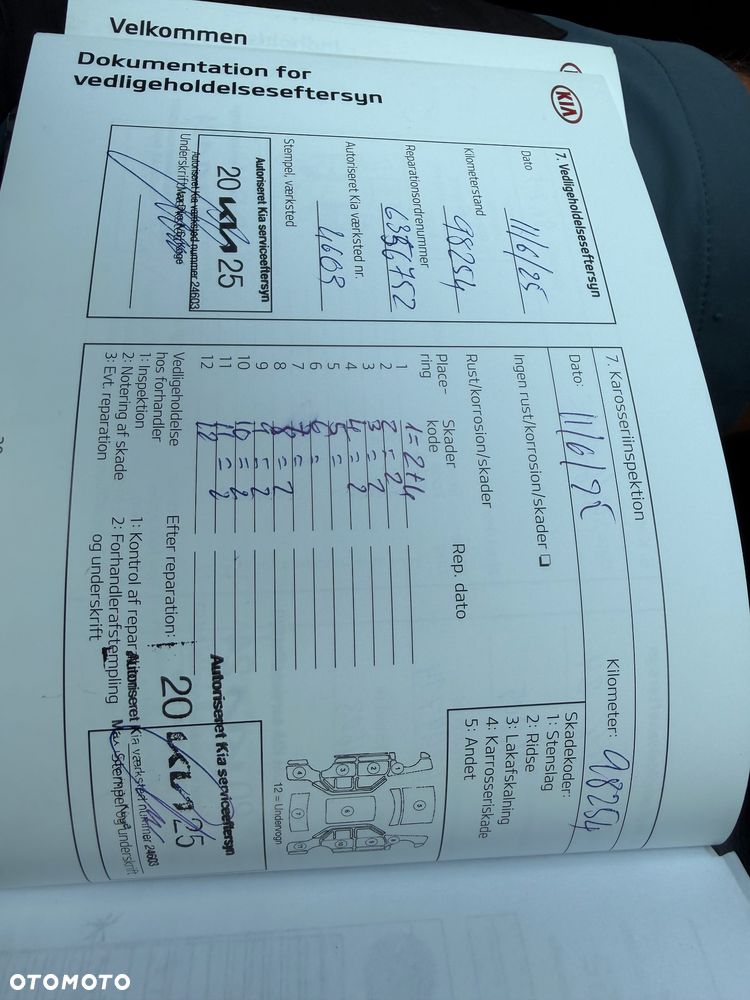 Velkommen
Dokumentation for
vedligeholdelseseftersyn
KIA
7. Vedligeholdelseseftersyn
Dato 11/6/25
Kilometerstand 98254
Reparationsordrenummer
Autoriseret Kia værksted nr. 4603
Stempel, værksted
Autoriseret Kia serviceeftersyn
20 KIA 25
Autoriseret Kia værksted nummer 24603
Underskrift
7. Karosseriinspektion
Dato: 11/6/25
Kilometer: 98254
Ingen rust/korrosion/skader
Rust/korrosion/skader
Place-
ring
Skader
kode
Rep. dato
1 1 = 2+4
2 2 = 2
3 3 = 2
4 4 = 2
5 5 =
6 6 =
7 7 =
8 8 = 2
9 9 = 2
10 10 = 2
11 11 = 2
12 12
Skadekoder:
1: Stenslag
2: Ridse
3: Lakafskalning
4: Karrosseriskade
5: Andet
12 = Undervogn
Vedligeholdelse
hos forhandler
1: Inspektion
2: Notering af skade
3: Evt. reparation
Efter reparation:
1: Kontrol af repar
2: Forhandlerafstempling
og underskrift
Autoriseret Kia serviceeftersyn
20 KIA 25
Autoriseret Kia værksted nummer 24603
Stempel og underskrift
OTOMOTO